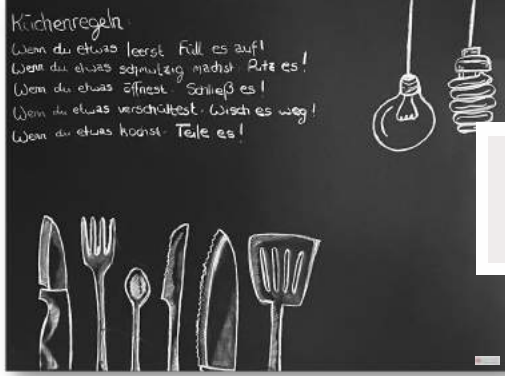 Küchenregeln:
Wenn du etwas leerst. Füll es auf!
Wenn du etwas schmutzig machst. Putz es!
Wenn du etwas öffnest. Schließ es!
Wenn du etwas verschüttest. Wisch es weg!
Wenn du etwas kochst. Teile es!